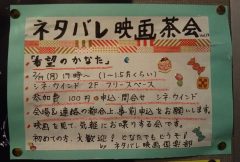 ネタバレ映画茶会
「希望のかなた」
2/19(月)19時〜(1〜1.5hくらい)
シネ・ウインド 2F フリースペース
参加費 100円 申込・問合せ シネ・ウインド
会場&連絡の都合上、事前申込をお願いします。
映画を見て、気軽にお喋りする会です。
初めての方、大歓迎!どなたでもどうぞ!
by ネタバレ映画倶楽部